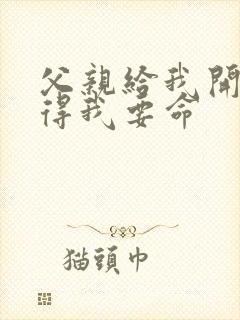 父親給我開
得我要命
猫頭巾